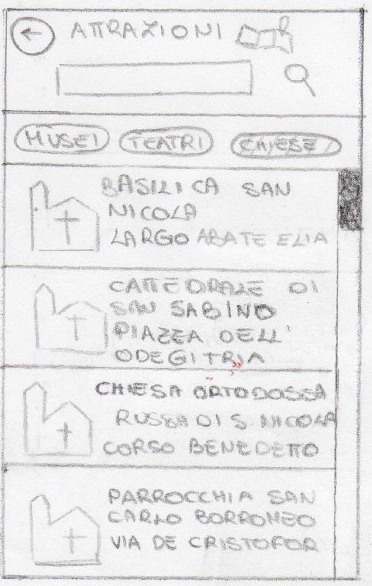 ATTRAZIONI
MUSEI TEATRI CHIESE
BASILICA SAN
NICOLA
LARGO ABATE ELIA
CATTEDRALE DI
SAN SABINO
PIAZZA DELL'
ODEGITRIA
CHIESA ORTODOSSA
RUSSA DI S. NICOLA
CORSO BENEDETTO
PARROCCHIA SAN
CARLO BORROMEO
VIA DE CRISTOFOR